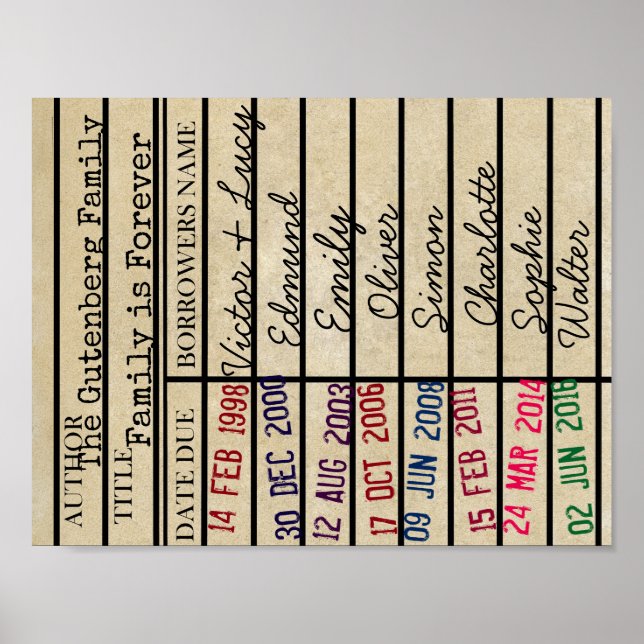 AUTHOR
The Gutenberg Family
TITLE
Family is Forever
DATE DUE BORROWERS NAME
14 FEB 1998 Victor + Lucy
30 DEC 2000 Edmund
12 AUG 2003 Emily
17 OCT 2006 Oliver
09 JUN 2008 Simon
15 FEB 2011 Charlotte
24 MAR 2014 Sophie
02 JUN 2016 Walter